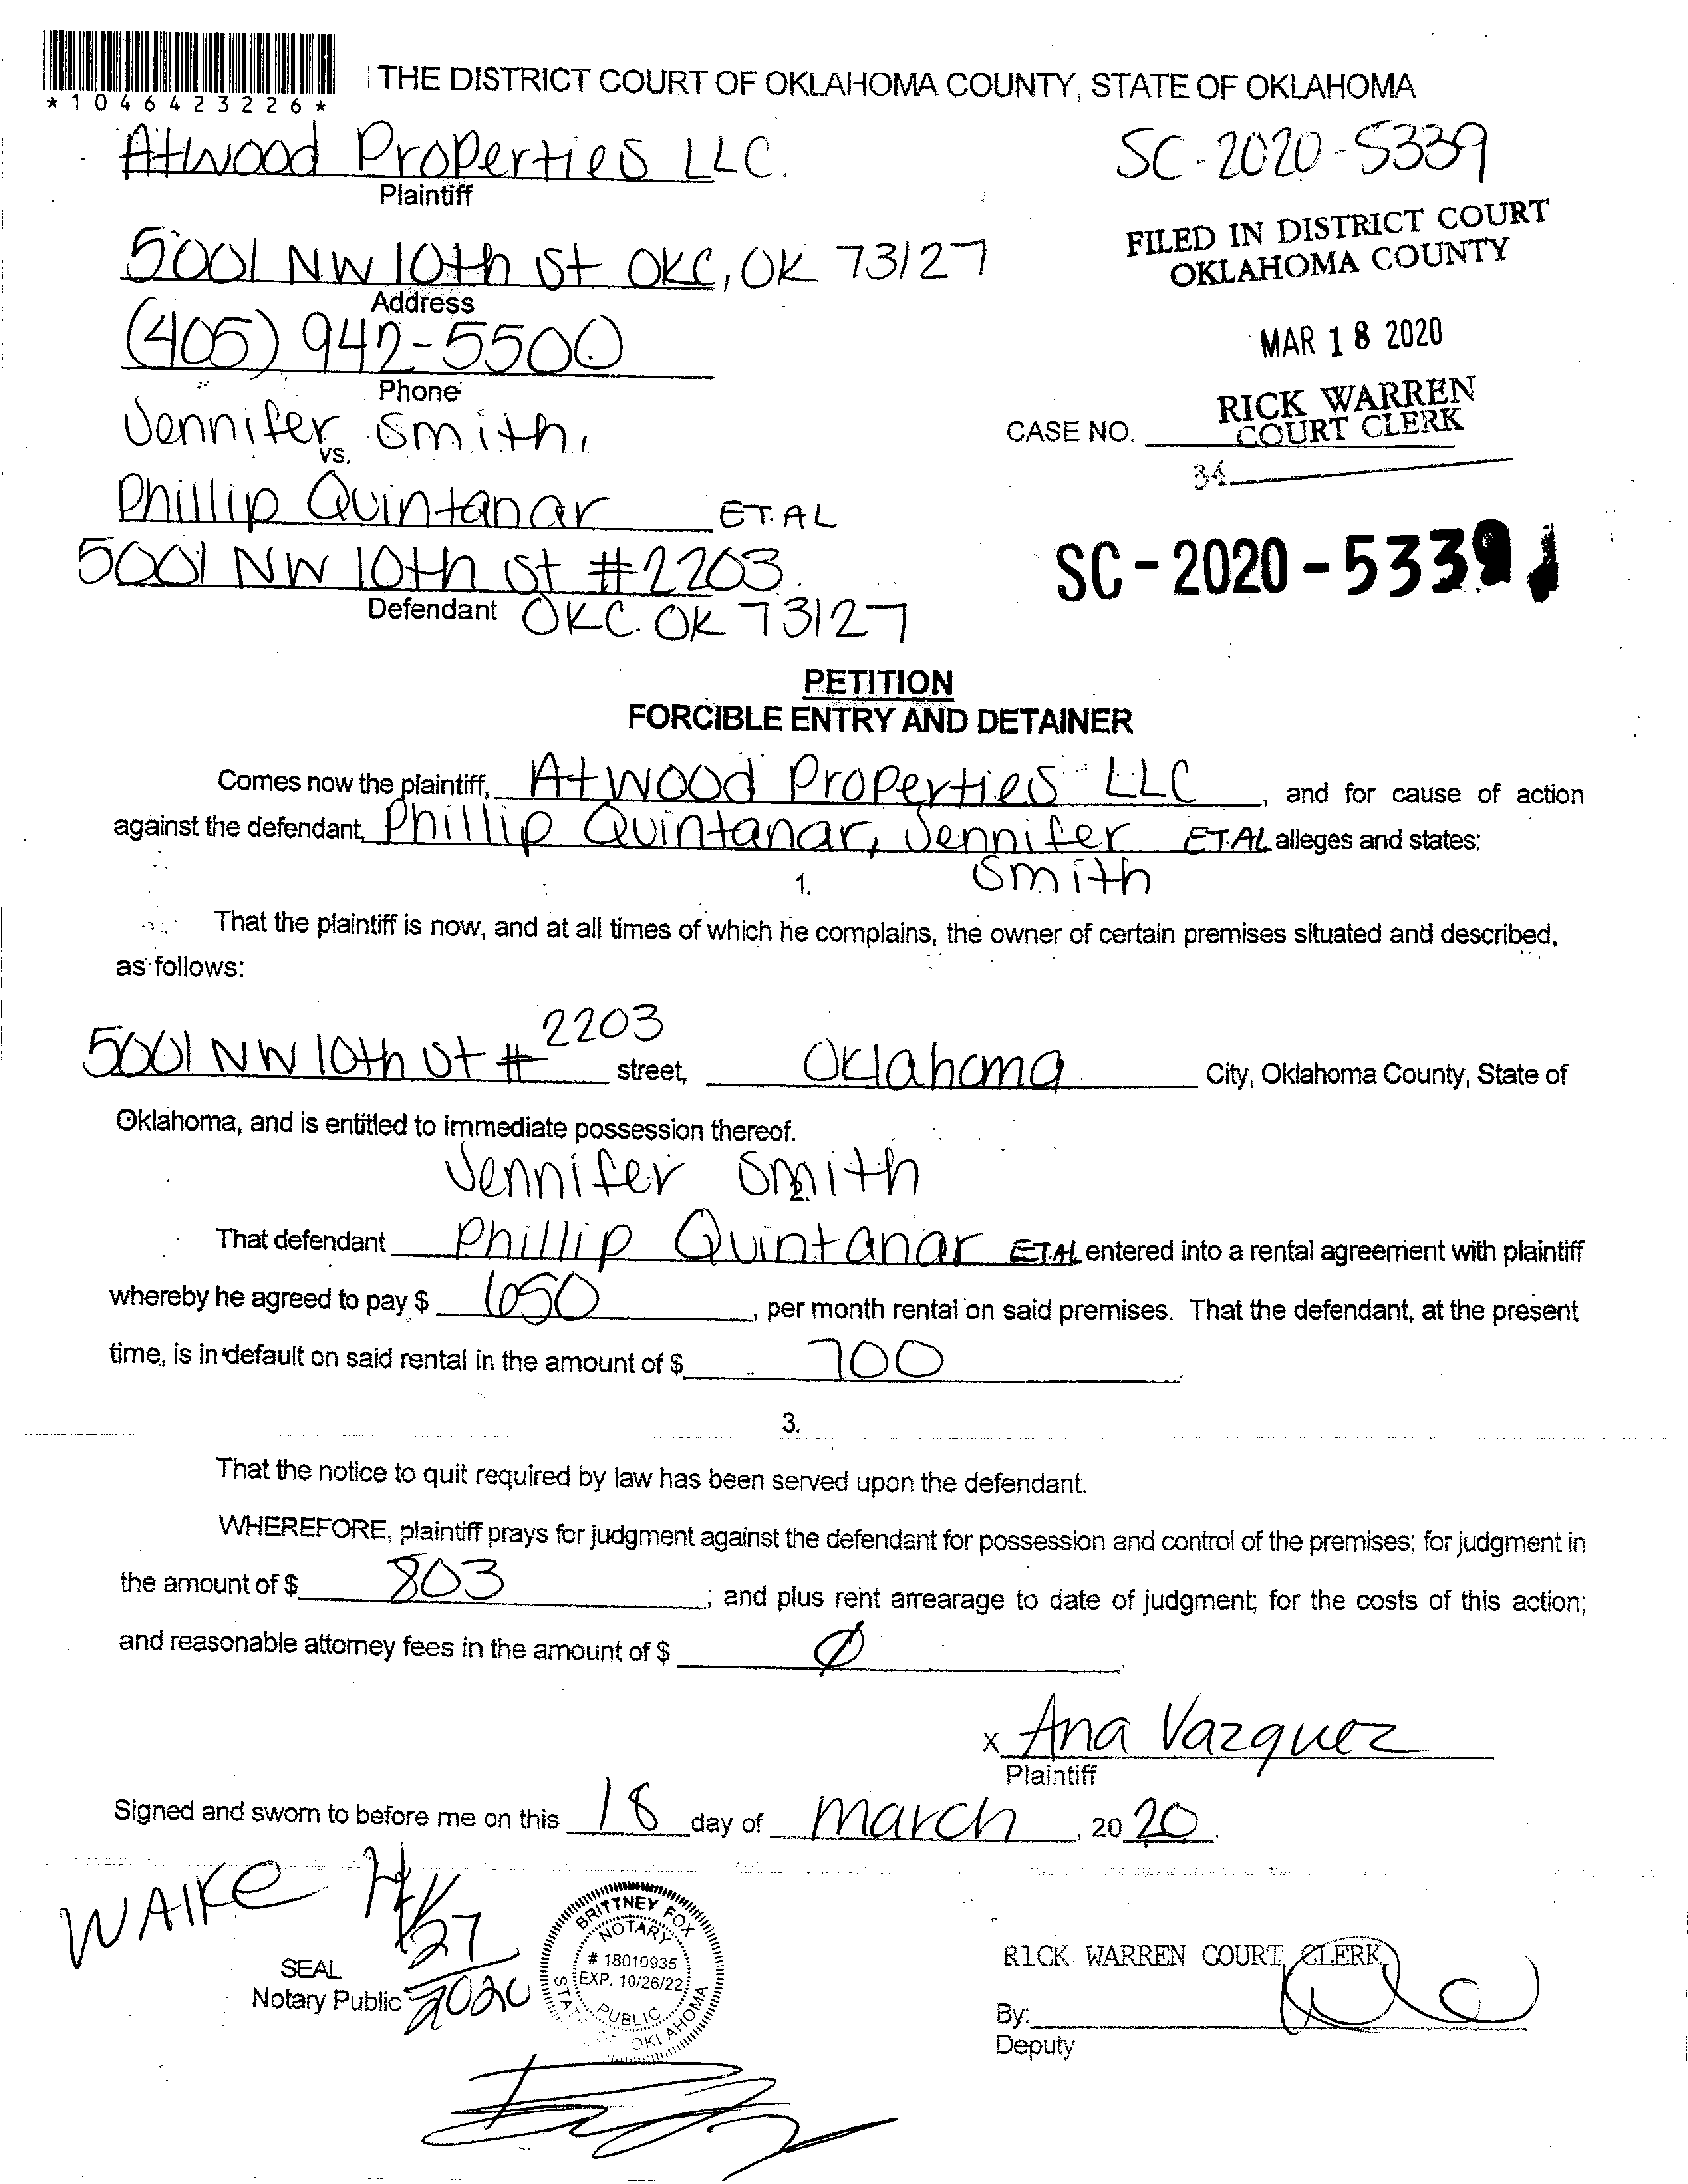 *1046423226*
THE DISTRICT COURT OF OKLAHOMA COUNTY, STATE OF OKLAHOMA
Atwood Properties LLC.
Plaintiff
SC-2020-5339
5001 NW 10th St OKC, OK 73127
Address
FILED IN DISTRICT COURT
OKLAHOMA COUNTY
(405) 942-5500
Phone
MAR 18 2020
Jennifer Smith,
vs.
RICK WARREN
COURT CLERK
CASE NO.
34
Phillip Quintanar ET.AL
5001 NW 10th St #2203
Defendant OKC. OK 73127
SC-2020-5339
PETITION
FORCIBLE ENTRY AND DETAINER
Comes now the plaintiff, Atwood Properties LLC, and for cause of action
against the defendant, Phillip Quintanar, Jennifer ET.AL alleges and states:
Smith
1.
That the plaintiff is now, and at all times of which he complains, the owner of certain premises situated and described,
as follows:
5001 NW 10th St # 2203 street, Oklahoma City, Oklahoma County, State of
Oklahoma, and is entitled to immediate possession thereof.
Jennifer Smith
2.
That defendant Phillip Quintanar ET.AL entered into a rental agreement with plaintiff
whereby he agreed to pay $ 650, per month rental on said premises. That the defendant, at the present
time, is in default on said rental in the amount of $ 700
3.
That the notice to quit required by law has been served upon the defendant.
WHEREFORE, plaintiff prays for judgment against the defendant for possession and control of the premises; for judgment in
the amount of $ 803; and plus rent arrearage to date of judgment; for the costs of this action;
and reasonable attorney fees in the amount of $ Ø
x Ana Vazquez
Plaintiff
Signed and sworn to before me on this 18 day of march, 2020.
SEAL
Notary Public
27
2020
BRITTNEY FOX
NOTARY
# 18010935
EXP. 10/26/22
PUBLIC
STATE OF OKLAHOMA
RICK WARREN COURT CLERK
By:
Deputy